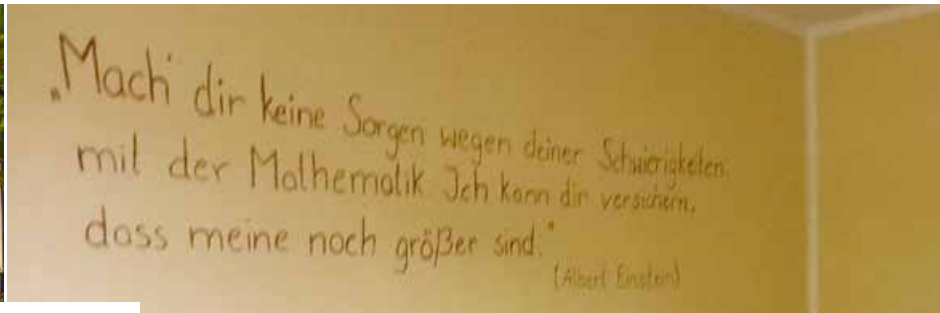 „Mach' dir keine Sorgen wegen deiner Schwierigkeiten
mit der Mathematik. Ich kann dir versichern,
dass meine noch größer sind."
(Albert Einstein)